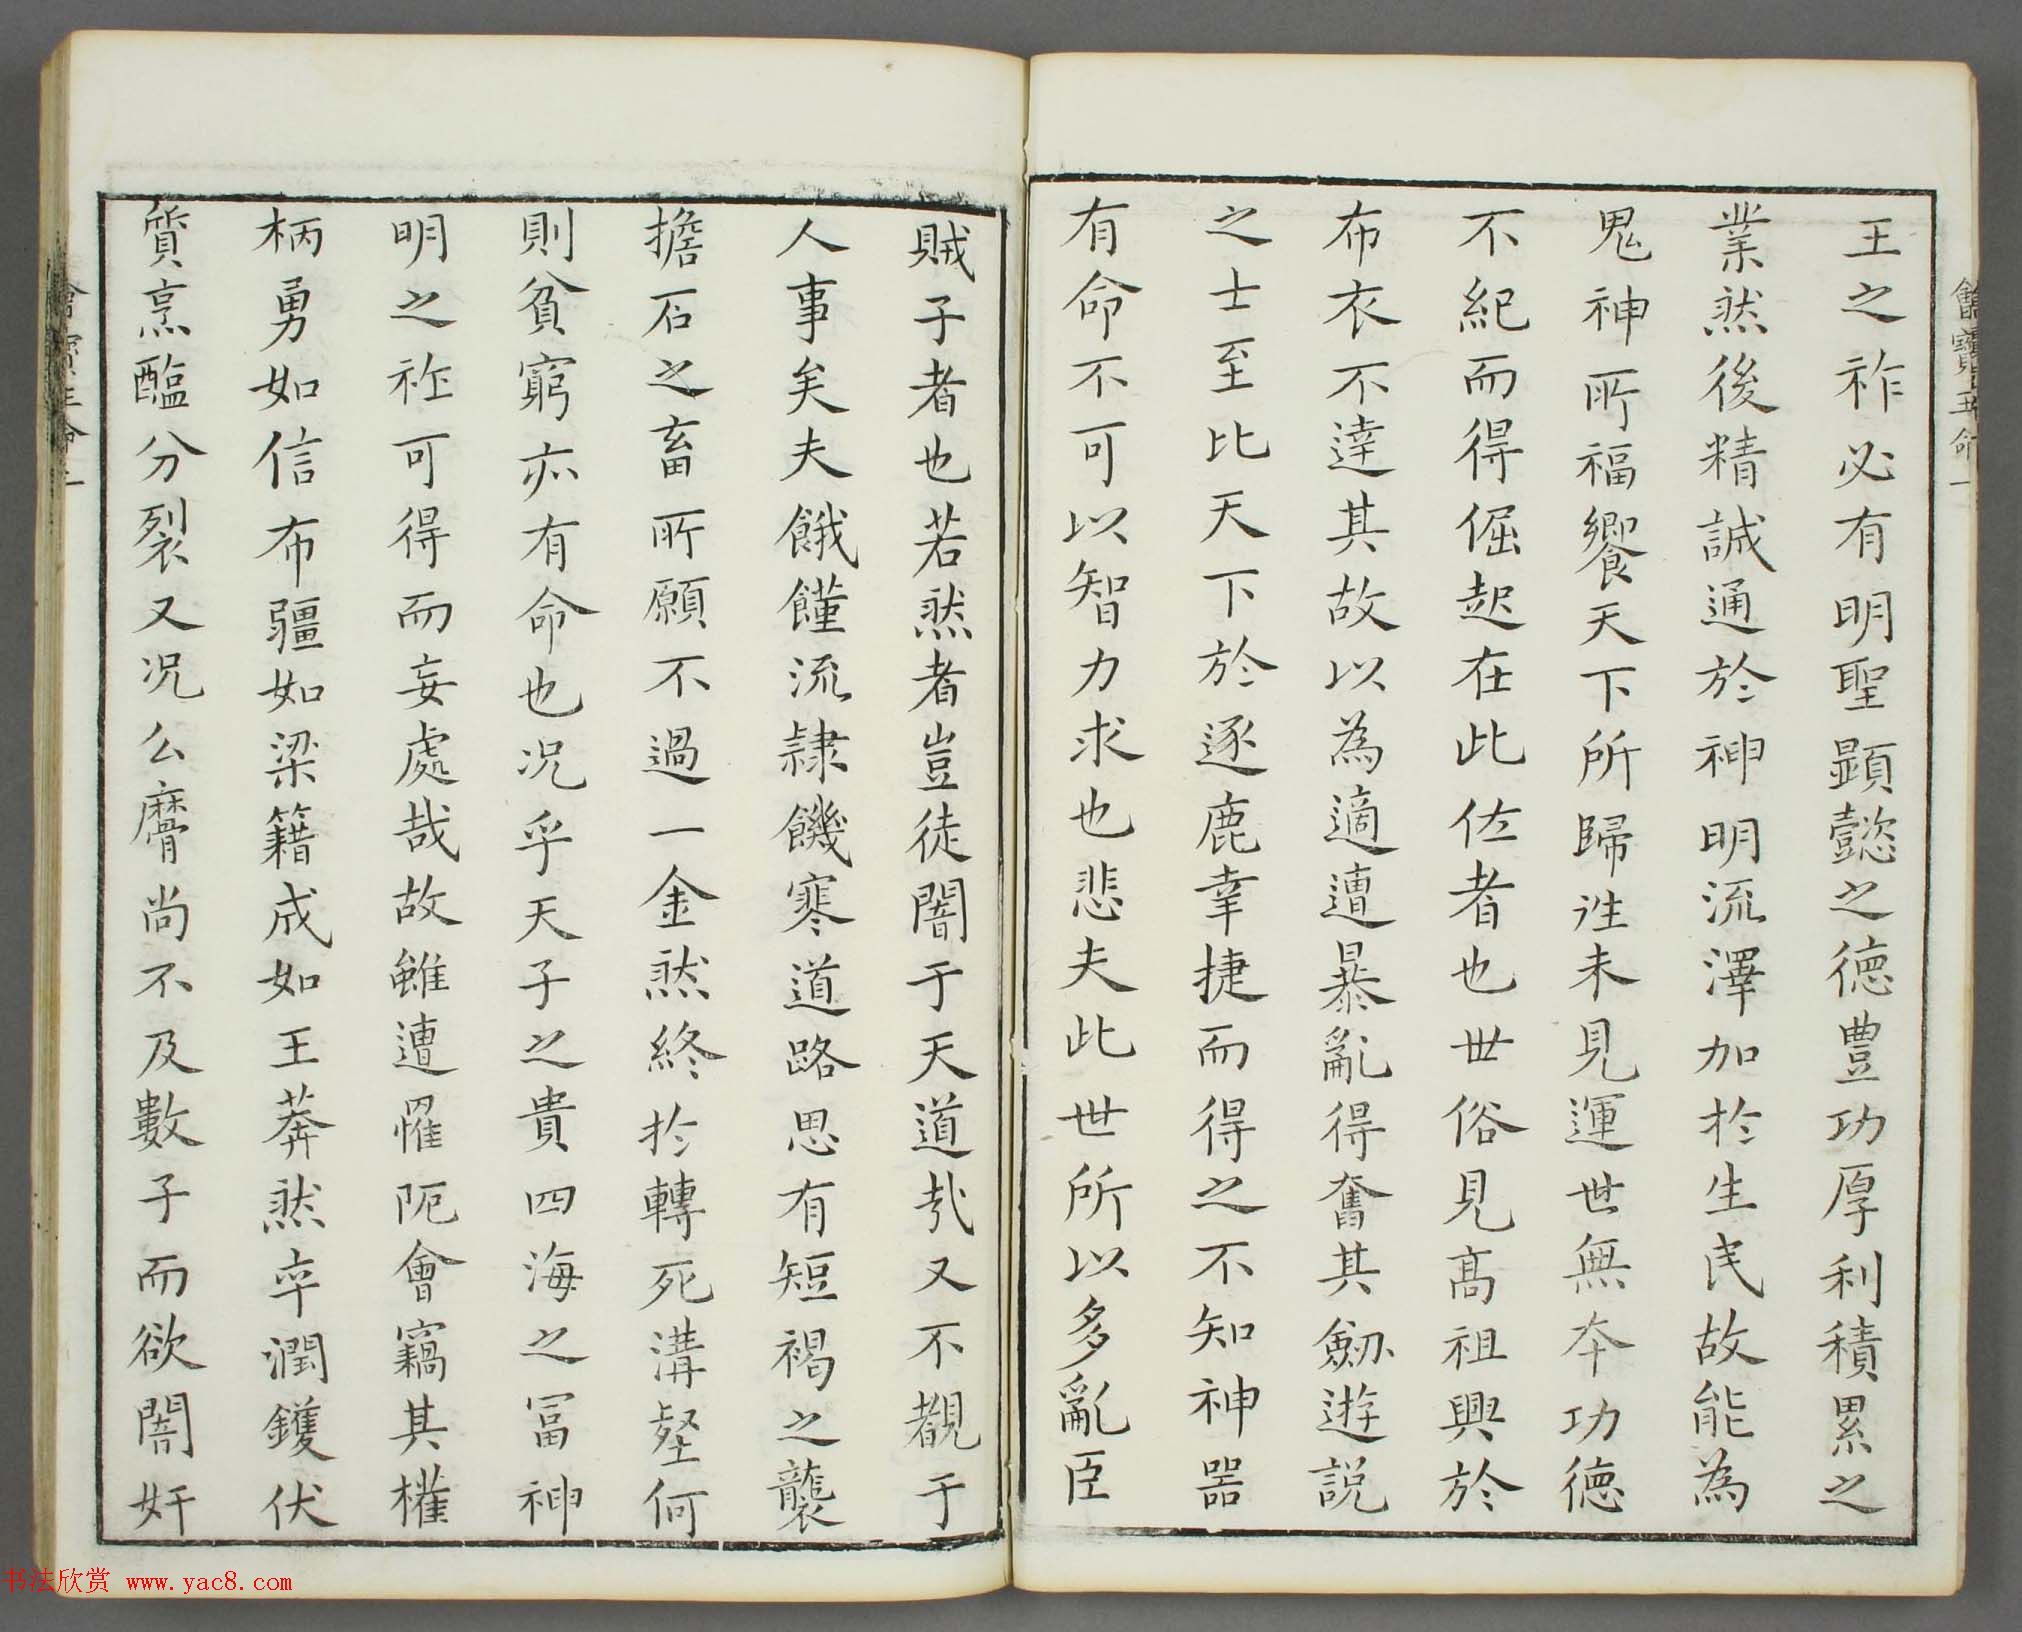 王之祚必有明聖顯懿之德豊功厚利積累之
業然後精誠通於神明流澤加於生民故能為
鬼神所福饗天下所歸往未見運世無本功德
不紀而得倔起在此位者也世俗見髙祖興於
布衣不達其故以為適遭暴亂得奮其劒遊説
之士至比天下於逐鹿幸捷而得之不知神器
有命不可以智力求也悲夫此世所以多亂臣
賊子者也若然者豈徒闇于天道㢤又不覩于
人事矣夫餓饉流隸饑寒道路思有短褐之襲
擔石之畜所願不過一金然終於轉死溝壑何
則貧窮亦有命也况乎天子之貴四海之冨神
明之祚可得而妄處哉故雖遭罹阨會竊其權
柄勇如信布彊如梁籍成如王莽然卒潤鑊伏
質烹醢分裂又况么麿尚不及數子而欲闇奸
書法欣赏 www.yac8.com